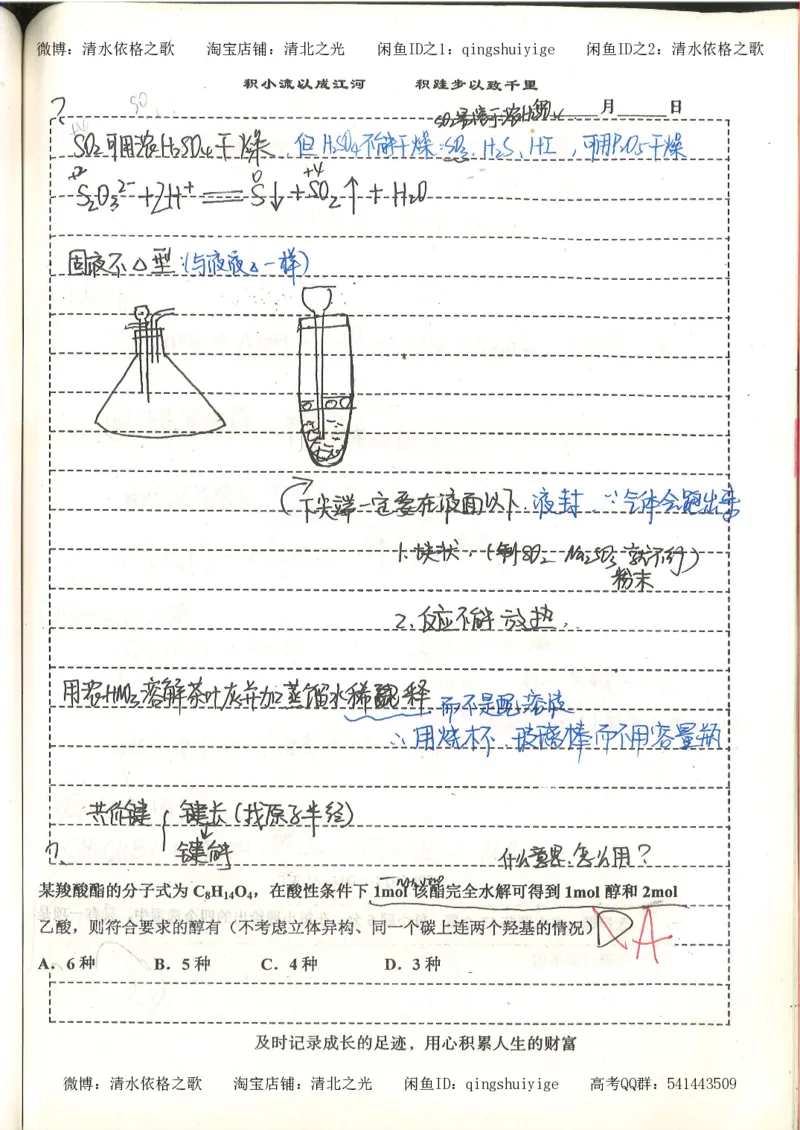 微博：清水依格之歌 淘宝店铺：清北之光 闲鱼ID之1：qingshuiyige 闲鱼ID之2：清水依格之歌
积小流以成江河 积跬步以致千里
月 日
SO₂易溶于浓H₂SO₄
SO₂可用浓H₂SO₄干燥，但H₂SO₄不能干燥SO₃、H₂S、HI，可用P₂O₅干燥
+2 0 +4
S₂O₃²⁻+2H⁺══S↓+SO₂↑+H₂O
固液不△型：(与液液△一样)
下尖端一定要在液面以下.液封.∵气体会跑出来
1.块状.(制SO₂ Na₂SO₃就不行)
粉末
2.反应不能放热.
用浓HNO₃溶解茶叶灰并加蒸馏水稀释.而不是配溶液
∴用烧杯.玻璃棒而不用容量瓶
共价键{键长(找原子半径)
↓
键能
什么意思.怎么用？
某羧酸酯的分子式为 C₈H₁₄O₄，在酸性条件下 1mol 该酯完全水解可得到 1mol 醇和 2mol
乙酸，则符合要求的醇有（不考虑立体异构、同一个碳上连两个羟基的情况） D A
A．6 种 B．5 种 C．4 种 D．3 种
及时记录成长的足迹，用心积累人生的财富
微博：清水依格之歌 淘宝店铺：清北之光 闲鱼ID：qingshuiyige 高考QQ群：541443509